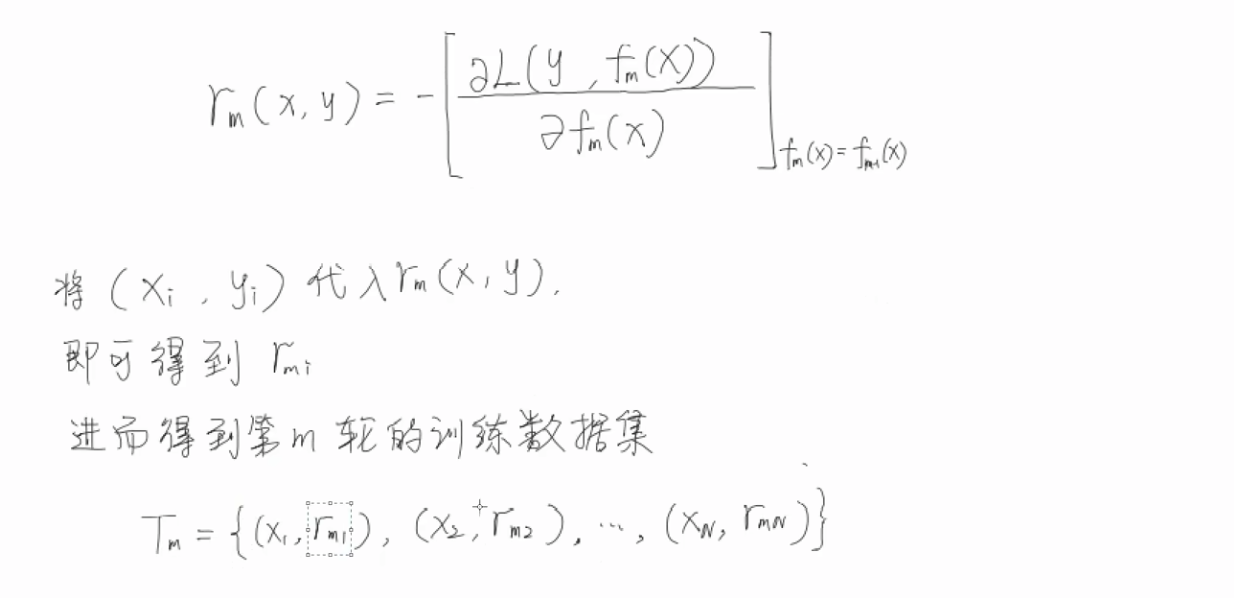 r_m(x, y) = -[∂L(y, f_m(x)) / ∂f_m(x)]_{f_m(x) = f_{m-1}(x)}
将 (x_i, y_i) 代入 r_m(x, y),
即可得到 r_{mi}
进而得到第 m 轮的训练数据集
T_m = {(x_1, r_{m1}), (x_2, r_{m2}), ..., (x_N, r_{mN})}